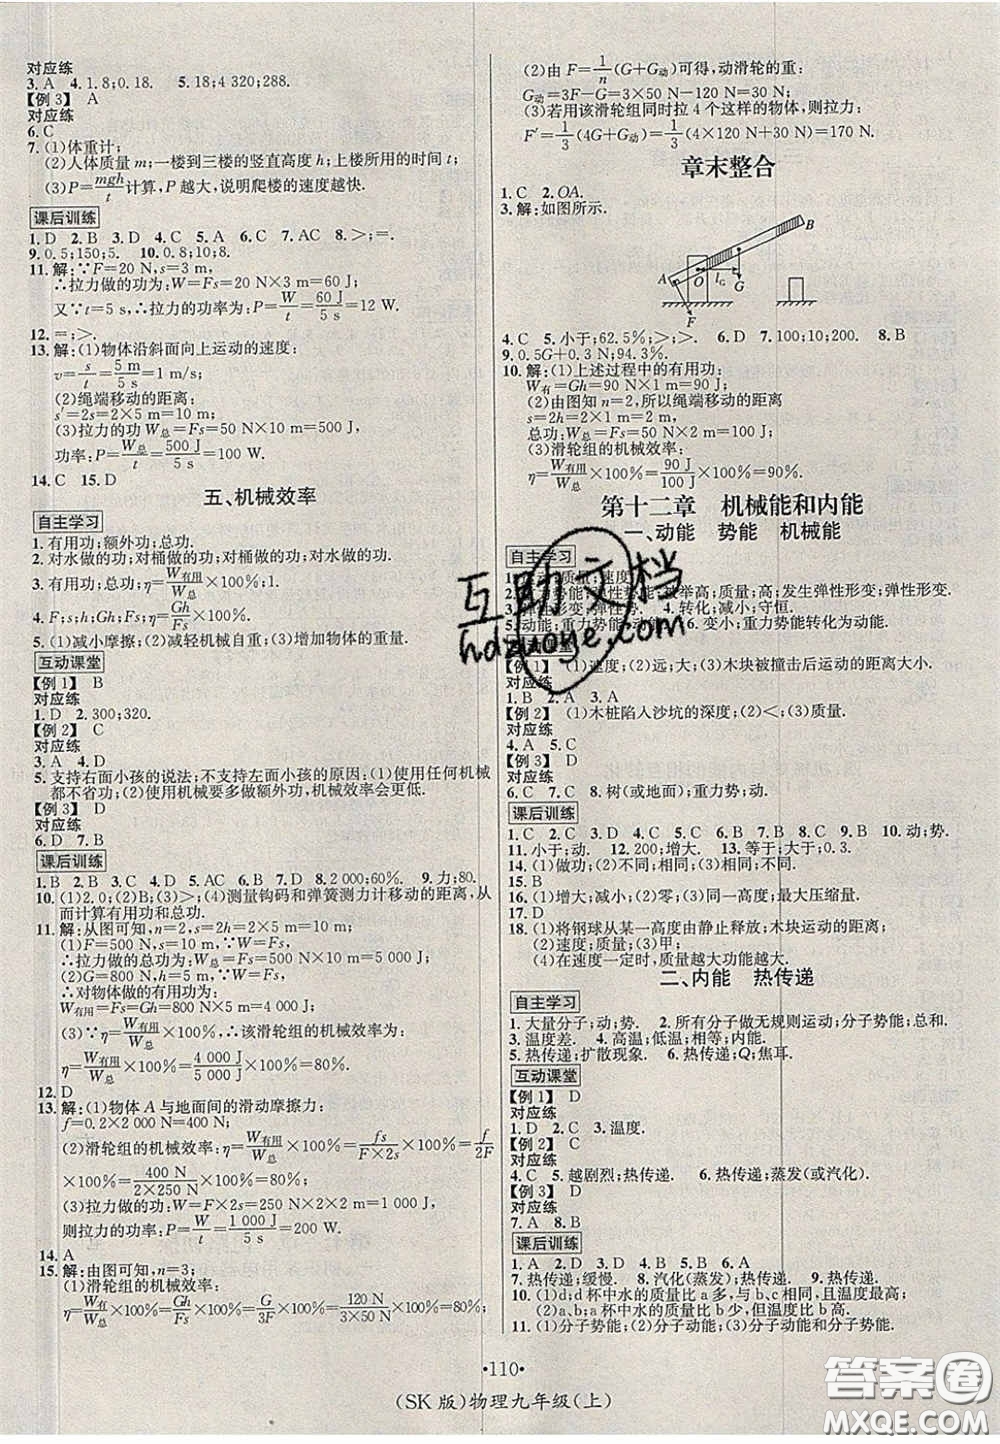 对应练
3. A　4. 1.8;0.18.　5. 18;4 320;288.
【例 3】　A
对应练
6. C
7. (1)体重计;
(2)人体质量 m;一楼到三楼的竖直高度 h;上楼所用的时间 t;
(3)P=mgh/t计算,P 越大,说明爬楼的速度越快.
课后训练
1. D　2. B　3. D　4. C　5. A　6. C　7. AC　8. >;=.
9. 0.5;150;5.　10. 0.8;10;8.
11. 解:∵F=20 N,s=3 m,
∴拉力做的功为:W=Fs=20 N×3 m=60 J,
又∵t=5 s,∴拉力的功率为:P=W/t=60 J/5 s=12 W.
12. =;>.
13. 解:(1)物体沿斜面向上运动的速度:
v=s/t=5 m/5 s=1 m/s;
(2)绳端移动的距离:
s′=2s=2×5 m=10 m;
(3)拉力的功 W总=Fs=50 N×10 m=500 J,
功率:P=W总/t=500 J/5 s=100 W.
14. C　15. D
五、机械效率
自主学习
1. 有用功;额外功;总功.
2. 对水做的功;对桶做的功;对桶做的功;对水做的功.
3. 有用功;总功;η=W有用/W总×100%;1.
4. Fs;hs;Gh;η=Gh/Fs×100%.
5. (1)减小摩擦;(2)减轻机械自重;(3)增加物体的重量.
互动课堂
【例 1】　B
对应练
1. D　2. 300;320.
【例 2】　C
对应练
3. A　4. D
5. 支持右面小孩的说法;不支持左面小孩的原因:(1)使用任何机械
都不省功;(2)使用机械要多做额外功,机械效率会更低.
【例 3】　D
对应练
6. D　7. B
课后训练
1. B　2. B　3. D　4. D　5. AC　6. B　7. D　8. 2 000;60%.　9. 力;80.
10. (1)2.0;(2)B;(3)>;(4)测量钩码和弹簧测力计移动的距离,从
而计算有用功和总功.
11. 解:从图可知,n=2,s=2h=2×5 m=10 m;
(1)F=500 N,s=10 m,∵W=Fs;
∴拉力做的总功为:W总=Fs=500 N×10 m=5 000 J;
(2)G=800 N,h=5 m;∵W=Gh;
∴对物体做的有用功为:
W有用=Fs=Gh=800 N×5 m=4 000 J;
(3)∵η=W有用/W总×100%,∴该滑轮组的机械效率为:
η=W有用/W总×100%=4 000 J/5 000 J×100%=80%.
12. D
13. 解:(1)物体 A 与地面间的滑动摩擦力:
f=0.2×2 000 N=400 N;
(2)滑轮组的机械效率:η=W有用/W总×100%=fs/F×2s×100%=f/2F
×100%=400 N/2×250 N×100%=80%;
(3)拉力做的功:W=F×2s=250 N×2×2 m=1 000 J,
则拉力的功率:P=W/t=1 000 J/5 s=200 W.
14. A
15. 解:由图可知,n=3;
(1)滑轮组的机械效率:
η=W有/W总×100%=Gh/Fs×100%=G/3F×100%=120 N/3×50 N×100%=80%;
(2)由 F=1/n(G+G动)可得,动滑轮的重:
G动=3F-G=3×50 N-120 N=30 N;
(3)若用该滑轮组同时拉 4 个这样的物体,则拉力:
F′=1/3(4G+G动)=1/3(4×120 N+30 N)=170 N.
章末整合
1. C　2. OA.
3. 解:如图所示.
A　O　lG　G　F　B
4. C　5. 小于;62.5%;>;>.　6. D　7. 100;10;200.　8. B
9. 0.5G+0.3 N;94.3%.
10. 解:(1)上述过程中的有用功:
W有=Gh=90 N×1 m=90 J;
(2)由图知 n=2,所以绳端移动的距离
s=2h=2×1 m=2 m,
总功:W总=Fs=50 N×2 m=100 J;
(3)滑轮组的机械效率:
η=W有用/W总×100%=90 J/100 J×100%=90%.
第十二章　机械能和内能
一、动能　势能　机械能
自主学习
1. 运动;质量;速度.
2. 重力势能;弹性势能;被举高;质量;高;发生弹性形变;弹性形变.
3. 弹性形变;弹性势能.　4. 转化;减小;守恒.
5. 动能;重力势能;弹性势能.　6. 变小;重力势能转化为动能.
互动课堂
【例 1】　(1)速度;(2)远;大;(3)木块被撞击后运动的距离大小.
对应练
1. B　2. A　3. A
【例 2】　(1)木桩陷入沙坑的深度;(2)<;(3)质量.
对应练
4. A　5. C
【例 3】　D
对应练
6. C　7. C　8. 树(或地面);重力势;动.
课后训练
1. C　2. C　3. D　4. C　5. C　6. B　7. C　8. C　9. B　10. 动;势.
11. 小于;动.　12. 200;增大.　13. 等于;大于;0.
14. (1)做功;(2)不同;相同;(3)相同;不同.
15. B
16. (1)增大;减小;(2)零;(3)同一高度;最大压缩量.
17. D
18. (1)将钢球从某一高度由静止释放;木块运动的距离;
(2)速度;质量;(3)甲;
(4)在速度一定时,质量越大动能越大.
二、内能　热传递
自主学习
1. 大量分子;动;势.　2. 所有分子做无规则运动;分子势能;总和.
3. 温度.　4. 高温;低温;相等;内能.
5. 热传递;扩散现象.　6. 热传递;Q;焦耳.
互动课堂
【例 1】　D
对应练
1. D　2. C　3. 温度.
【例 2】　C
对应练
4. C　5. 越剧烈;热传递.　6. 热传递;蒸发(或汽化).
【例 3】　D
对应练
7. A　8. A
课后训练
1. A　2. D　3. D　4. B　5. D　6. A
7. 热传递;缓慢.　8. 汽化(蒸发);热传递.　9. 热传递;增加.
10. (1)d;d 杯中水的质量比 a 多,与 b 相同,且温度最高;
(2)a、b;a 杯中水的质量比 b 少,但温度比 b 高.
11. (1)分子势能;(2)分子动能;(3)分子动能和分子势能.
互助文档
hdzuoye.com
·110·
(SK 版)物理九年级(上)
答案圈
MXQE.COM